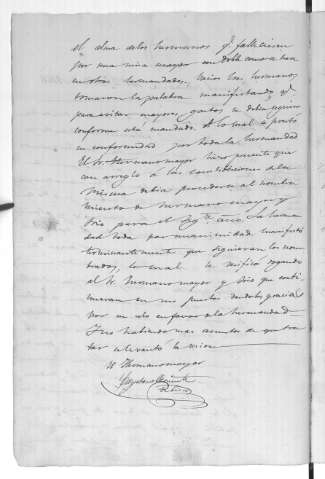 el alma de los hermanos q. fallecieran
por una misa mayor con doble como se hace
en otras hermandades, varios hermanos
tomaron la palabra manifestando q.
para evitar mayores gastos se debia seguir
conforme esta mandado. A lo cual se prestó
en conformidad por toda la hermandad
El Sr. Hermano mayor hizo presente que
con arreglo a las constituciones de la
misma debia procederse al nombra
miento de hermano mayor y
para el Sig.te año. La herman
dad toda por unanimidad manifestó
terminantemente que siguieran los nom
brados, lo cual se verificó rogando
al Sr. hermano mayor y que conti
nuaran en sus puestos dandoles gracias
por su celo en favor de la hermandad
Y no habiendo mas asuntos de que tra
tar se levantó la sesion
El Hermano mayor